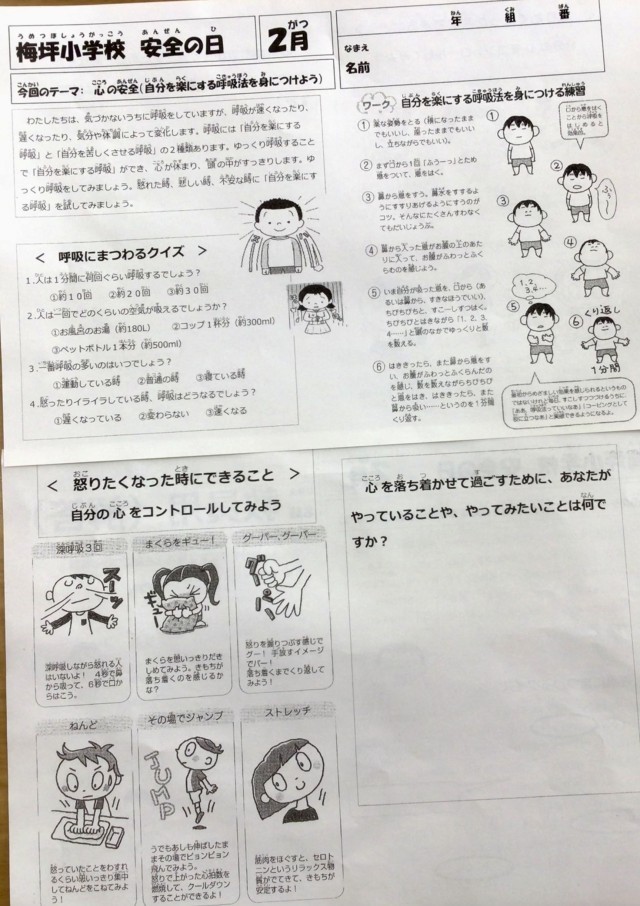 うめつぼしょうがっこう あんぜん ひ
梅坪小学校 安全の日
がつ
2月
ねん くみ ばん
年 組 番
なまえ
名前
今回のテーマ: 心の安全(自分を楽にする呼吸法を身につけよう)
わたしたちは、気づかないうちに呼吸をしていますが、呼吸が速くなったり、
遅くなったり、気分や体調によって変化します。呼吸には「自分を楽にする
呼吸」と「自分を苦しくさせる呼吸」の2種類あります。ゆっくり呼吸すること
で「自分を楽にする呼吸」ができ、心が休まり、頭の中がすっきりします。ゆ
っくり呼吸をしてみましょう。怒れた時、悲しい時、不安な時に「自分を楽にす
る呼吸」を試してみましょう。
< 呼吸にまつわるクイズ >
1.人は1分間に何回ぐらい呼吸するでしょう?
①約10回 ②約20回 ③約30回
2.人は一回でどのくらいの空気が吸えるでしょうか?
①お風呂のお湯(約180L) ②コップ1杯分(約300ml)
③ペットボトル1本分(約500ml)
3.一番呼吸の多いのはいつでしょう?
①運動している時 ②普通の時 ③寝ている時
4.怒ったりイライラしている時、呼吸はどうなるでしょう?
①遅くなっている ②変わらない ③速くなる
ワーク 自分を楽にする呼吸法を身につける練習
① 楽な姿勢をとる(横になったまま
でもいいし、座ったままでもいい
し、立ちながらでもいい)。
② まず口から1回「ふうーっ」とため
息をついて、息をはく。
③ 鼻から息をすう。鼻水をすするよ
うにすすりあげるようにすうのが
コツ。そんなにたくさんすわなく
てもだいじょうぶ。
④ 鼻から入った息がお腹の上のあた
りに入って、お腹がふわっとふく
らむのを感じよう。
⑤ いま自分が会った息を、口から(あ
るいは鼻から、すきなほうでいい)、
ちびちびちびと、すこーしずつはく。
ちびちびとはきながら「1、2、3、
4……」と頭のなかでゆっくりと数
を数える。
⑥ はききったら、また鼻から息をす
い、お腹がふわっとふくらんだのを
感じ、数を数えながらちびちびち
と息をはき、はききったら、また
鼻から吸い……というのを1分間く
り返す。
①
口から息をはく
ことから呼吸を
はじめると
効果的。
②
ふぅ〜
③
④
1、2、
3、4…
⑤
⑥ くり返し
1分間
< 怒りたくなった時にできること >
自分の心をコントロールしてみよう
深呼吸3回
スーッ
深呼吸しながら怒れる人
はいないよ! 4秒で鼻
から吸って、6秒で口か
らはこう。
まくらをギュー!
ギュー
まくらを思いっきりだき
しめてみよう。きもちが
落ち着くのを感じるか
な?
グーパー、グーパー
グー パー
怒りを握りつぶす感じで
グー! 手放すイメージ
でパー!
落ち着くまでくり返して
みよう!
ねんど
怒っていたことをわすれ
るくらい思いっきり集中
してねんどをこねてみよ
う!
その場でジャンプ
JUMP
うでもあしも伸ばしたま
まその場でピョンピョン
飛んでみよう。
怒りで上がった心拍数を
燃焼して、クールダウン
することができるよ!
ストレッチ
筋肉をほぐすと、セロト
ニンというリラックス物
質がでてきて、きもちが
安定するよ!
心を落ち着かせて過ごすために、あなたが
やっていることや、やってみたいことは何で
すか?